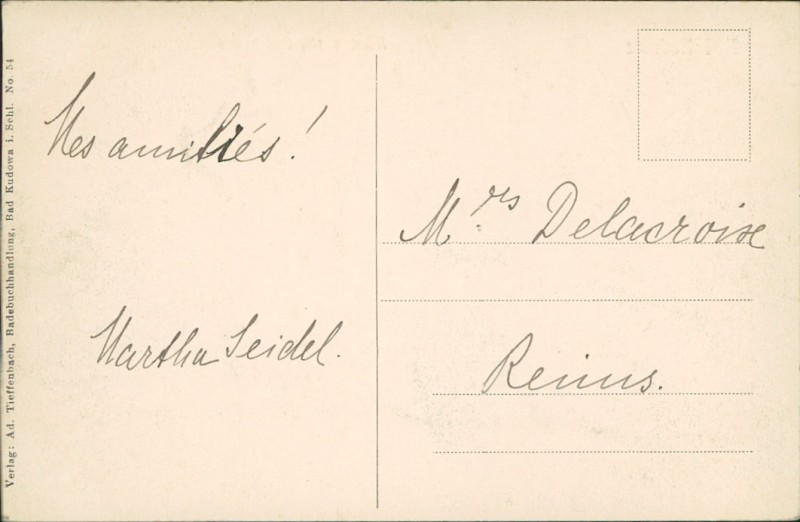 Verlag: Ad. Tieffenbach, Badebuchhandlung, Bad Kudowa i. Schl. No. 54
Mes amitiés!
Martha Seidel.
M.rs Delacroise
Reims.